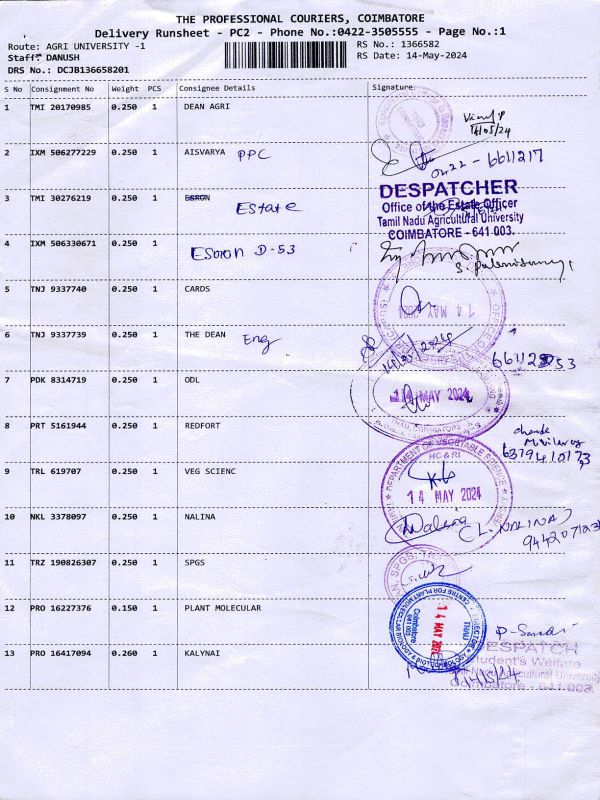 THE PROFESSIONAL COURIERS, COIMBATORE
Delivery Runsheet - PC2 - Phone No.:0422-3505555 - Page No.:1
Route: AGRI UNIVERSITY -1
RS No.: 1366582
Staff: DANUSH
RS Date: 14-May-2024
DRS No.: DCJB136658201
S No Consignment No Weight PCS Consignee Details Signature
1 TMI 20170985 0.250 1 DEAN AGRI
14/05/24
2 IXM 506277229 0.250 1 AISVARYA PPC
0422-6611217
DESPATCHER
3 TMI 30276219 0.250 1 ESRON Estate
Office of the Estate Officer
Tamil Nadu Agricultural University
COIMBATORE - 641 003.
4 IXM 506330671 0.250 1 Esron D-53
5 TNJ 9337740 0.250 1 CARDS
14 MAY 2024
6 TNJ 9337739 0.250 1 THE DEAN Eng
14/05/2024
7 PDK 8314719 0.250 1 ODL
14 MAY 2024
8 PRT 5161944 0.250 1 REDFORT
6379410173
9 TRL 619707 0.250 1 VEG SCIENC
DEPARTMENT OF VEGETABLE SCIENCE
HC & RI
14 MAY 2024
10 NKL 3378097 0.250 1 NALINA
Nalina (L. NALINA)
11 TRZ 190826307 0.250 1 SPGS
12 PRO 16227376 0.150 1 PLANT MOLECULAR
CENTRE FOR PLANT MOLECULAR BIOLOGY &
TNAU
14 MAY 2024
Coimbatore
641 003
13 PRO 16417094 0.260 1 KALYNAI
DESPATCH
Student's Welfare
Agricultural University
Coimbatore - 641.003.